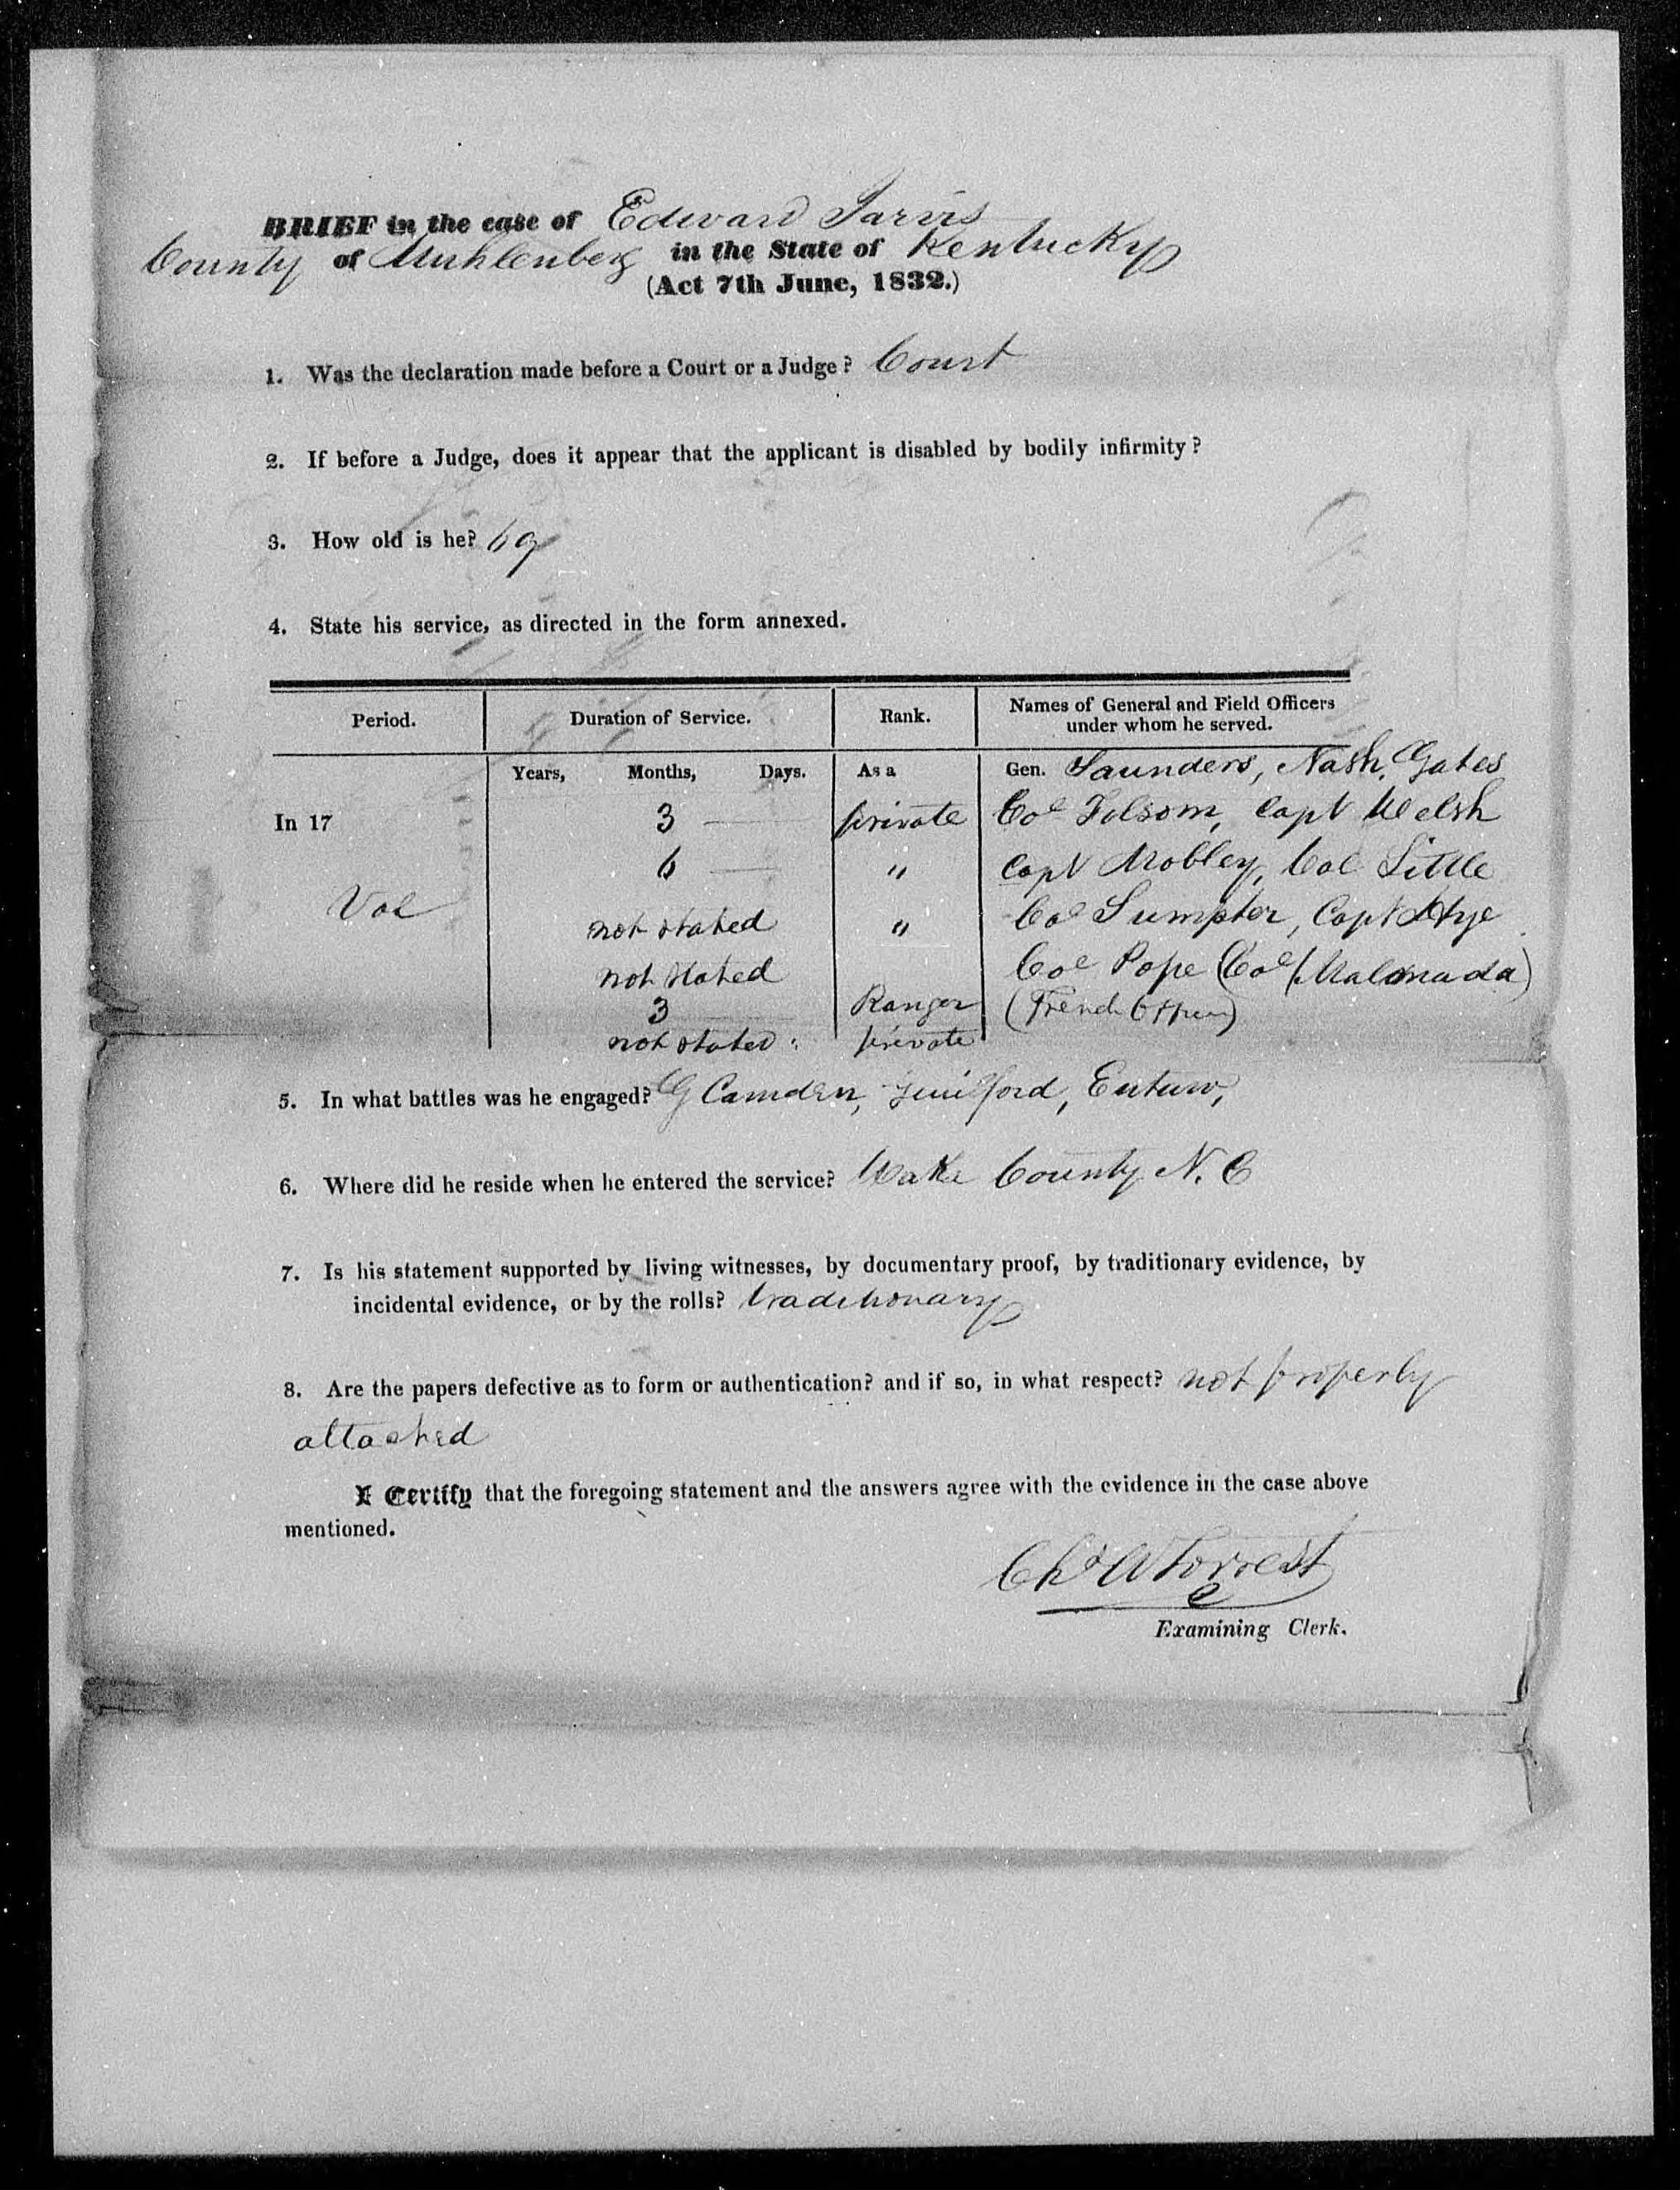 BRIEF in the case of Edward Jarvis
County of Muhlenberg in the State of Kentucky
(Act 7th June, 1832.)
1. Was the declaration made before a Court or a Judge? Court
2. If before a Judge, does it appear that the applicant is disabled by bodily infirmity?
3. How old is he? 69
4. State his service, as directed in the form annexed.
Period. Duration of Service. Rank. Names of General and Field Officers
under whom he served.
Years, Months, Days. As a Gen. Saunders, Nash, Gates
In 17 3 private Col Folsom, Capt Welsh
6 " Capt Mobley, Col Little
Vol not stated " Col Sumpter, Capt
not stated Col Pope (Col Malmada)
3 Ranger (French Officer)
not stated private
5. In what battles was he engaged? Camden, Guilford, Eutaw,
6. Where did he reside when he entered the service? Wake County N. C
7. Is his statement supported by living witnesses, by documentary proof, by traditionary evidence, by
incidental evidence, or by the rolls? traditionary
8. Are the papers defective as to form or authentication? and if so, in what respect? not properly
attached
I Certify that the foregoing statement and the answers agree with the evidence in the case above
mentioned.
Chs W Forrest
Examining Clerk.